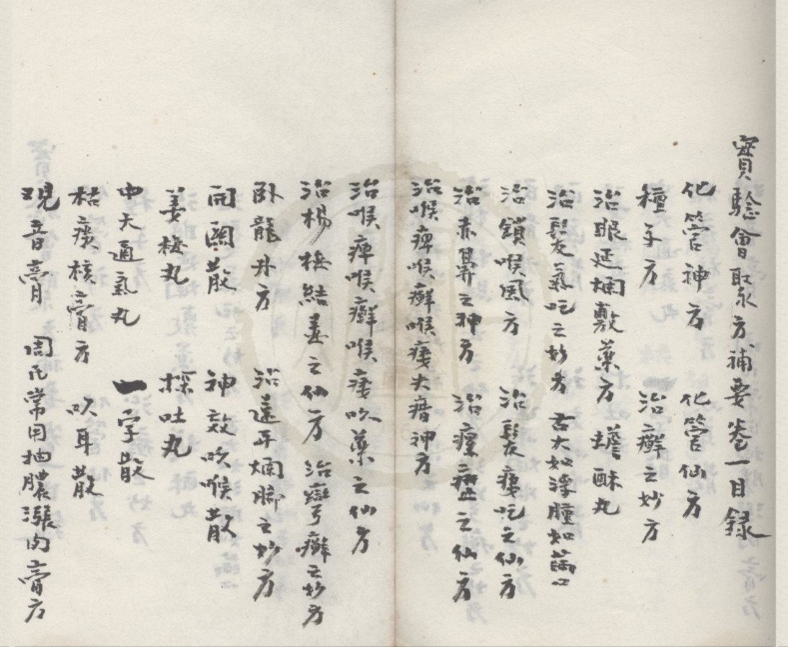 實驗會取永方補要卷一目錄
化管神方 化管仙方
種子方 治癬之妙方
治眼延爛敷藥方 蟾酥丸
治髮氣吃之妙方 舌大如浮腫如
治鎖喉風方 治髮瘻吃之仙方
治赤鼻之神方 治瘰之仙方
治喉痺喉癬喉瘻大瘡神方
治喉痺喉癬喉瘻吹藥之仙方
治楊梅結毒之仙方 治癬之妙方
卧龍丹方 治遠年爛脚之妙方
開關散 神效吹喉散
姜梅丸 探吐丸
中天通氣丸 一字散
枯痰核膏方 吹耳散
現音膏 周氏常用抽膿漲肉膏方